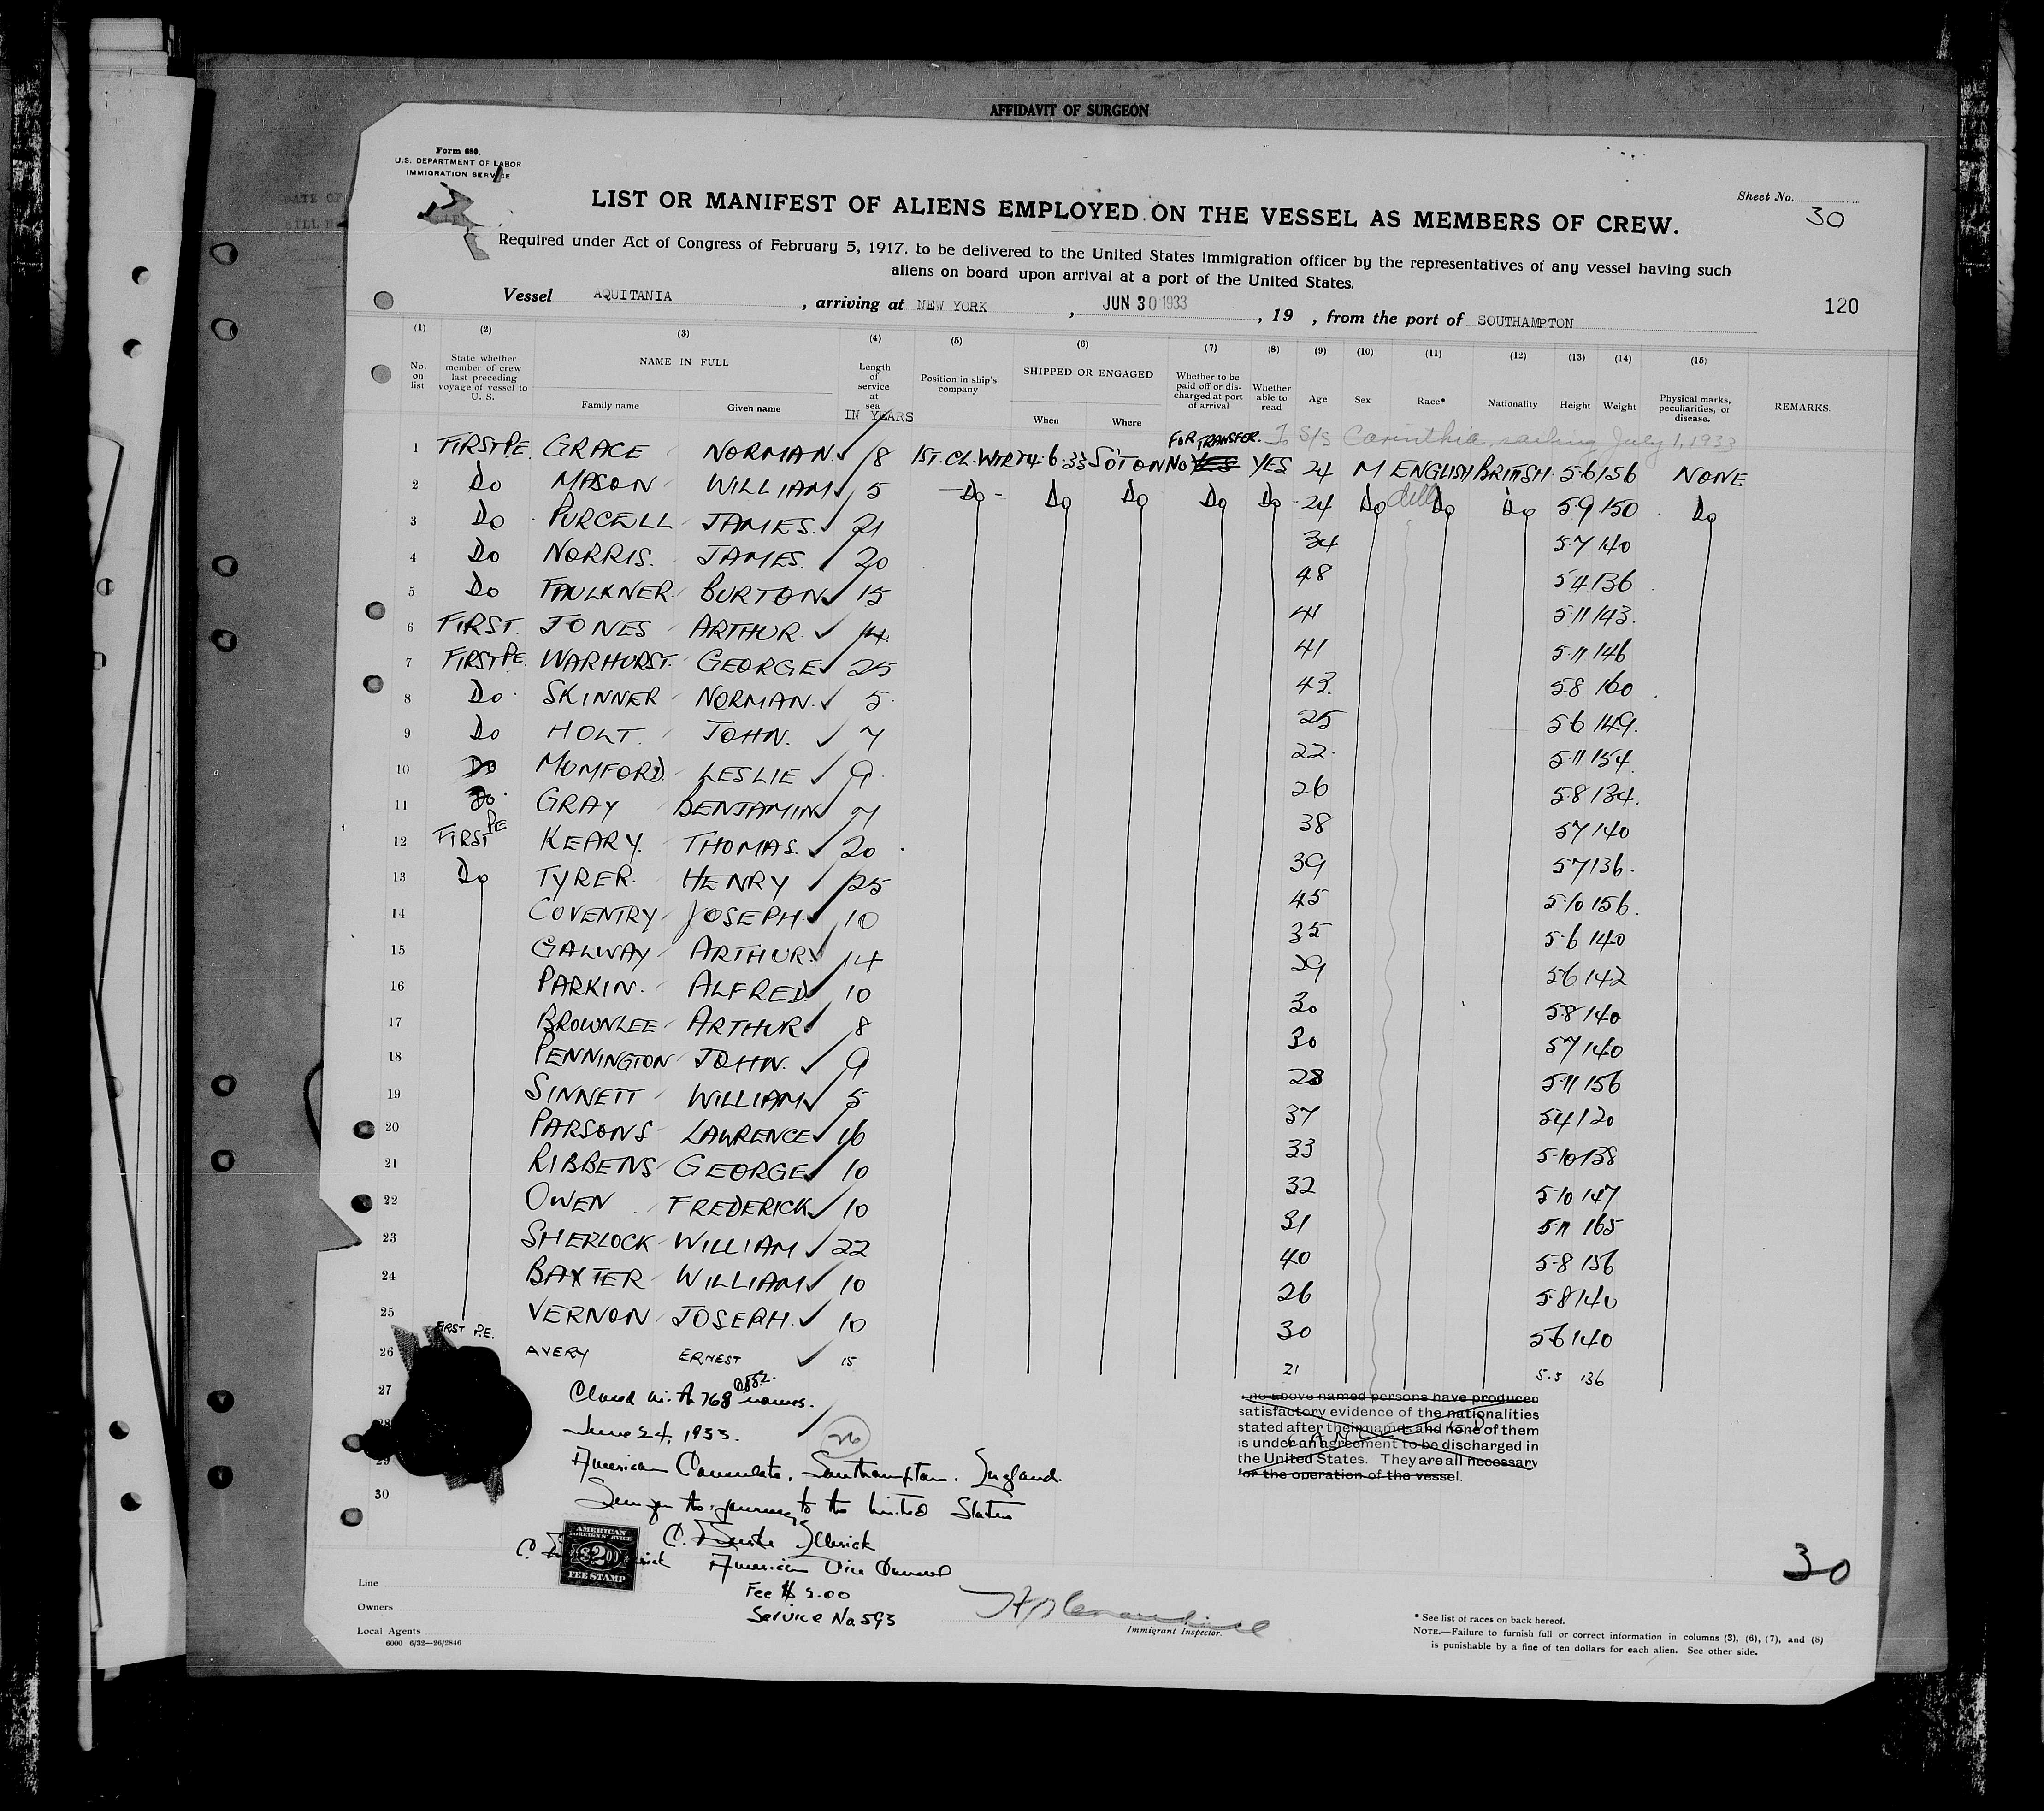 AFFIDAVIT OF SURGEON
Form 680.
U.S. DEPARTMENT OF LABOR
IMMIGRATION SERVICE
Sheet No. 30
LIST OR MANIFEST OF ALIENS EMPLOYED ON THE VESSEL AS MEMBERS OF CREW.
Required under Act of Congress of February 5, 1917, to be delivered to the United States immigration officer by the representatives of any vessel having such
aliens on board upon arrival at a port of the United States.
Vessel AQUITANIA, arriving at NEW YORK, JUN 30 1933, 19 , from the port of SOUTHAMPTON
120
(1) (2) (3) (4) (5) (6) (7) (8) (9) (10) (11) (12) (13) (14) (15)
No. on list
State whether member of crew last preceding voyage of vessel to U. S.
NAME IN FULL
Family name Given name
Length of service at sea IN YEARS
Position in ship's company
SHIPPED OR ENGAGED
When Where
Whether to be paid off or discharged at port of arrival
Whether able to read
Age Sex Race* Nationality Height Weight
Physical marks, peculiarities, or disease.
REMARKS.
FOR TRANSFER. To S/S Carinthia, sailing July 1, 1933
1 FIRST PE. GRACE NORMAN. 18 1ST. CL. WTR 14·6·33 SOTON NO YES YES 24 M ENGLISH BRITISH 5·6 156 NONE
2 Do MASON WILLIAM 5 Do Do Do Do Do 24 Do Do Do 5·9 150 Do
3 Do PURCELL JAMES. 21 34 5·7 140
4 Do NORRIS. JAMES. 20 48 5·4 136
5 Do FAULKNER BURTON 15 41 5·11 143.
6 FIRST. JONES ARTHUR. 14. 41 5·11 146
7 FIRST PE. WARHURST. GEORGE 25 43. 5·8 160
8 Do SKINNER NORMAN. 5 25 5·6 149.
9 Do HOLT. JOHN. 7 22. 5·11 154.
10 Do MUMFORD LESLIE 9 26 5·8 134.
11 Do GRAY BENJAMIN 7 38 5·7 140
12 FIRST PE KEARY. THOMAS. 20 39 5·7 136.
13 Do TYRER. HENRY 25 45 5·10 156.
14 COVENTRY JOSEPH. 10 35 5·6 140
15 GALWAY ARTHUR 14 29 5·6 142
16 PARKIN. ALFRED 10 30 5·8 140
17 BROWNLEE ARTHUR 8 30 5·7 140
18 PENNINGTON JOHN. 9 28 5·11 156
19 SINNETT WILLIAM 5 37 5·4 120
20 PARSONS LAWRENCE 16 33 5·10 138
21 RIBBENS GEORGE 10 32 5·10 147
22 OWEN FREDERICK 10 31 5·11 165
23 SHERLOCK WILLIAM 22 40 5·8 156
24 BAXTER WILLIAM 10 26 5·8 140
25 VERNON JOSEPH. 10 30 5·6 140
26 FIRST P.E. AVERY ERNEST 15 21 5·5 136
27 Closed with 768 names.
28 June 24, 1933. 26
29 American Consulate, Southampton. England.
30 Seen for the journey to the United States
American Vice Consul
Fee $2.00
Service No 593
AMERICAN
FOREIGN SERVICE
$2.00
FEE STAMP
The above named persons have produced
satisfactory evidence of the nationalities
stated after their names and none of them
is under an agreement to be discharged in
the United States. They are all necessary
for the operation of the vessel.
30
Line
Owners
Local Agents
6000 6/32—26/2846
Immigrant Inspector.
* See list of races on back hereof.
NOTE.—Failure to furnish full or correct information in columns (3), (6), (7), and (8)
is punishable by a fine of ten dollars for each alien. See other side.